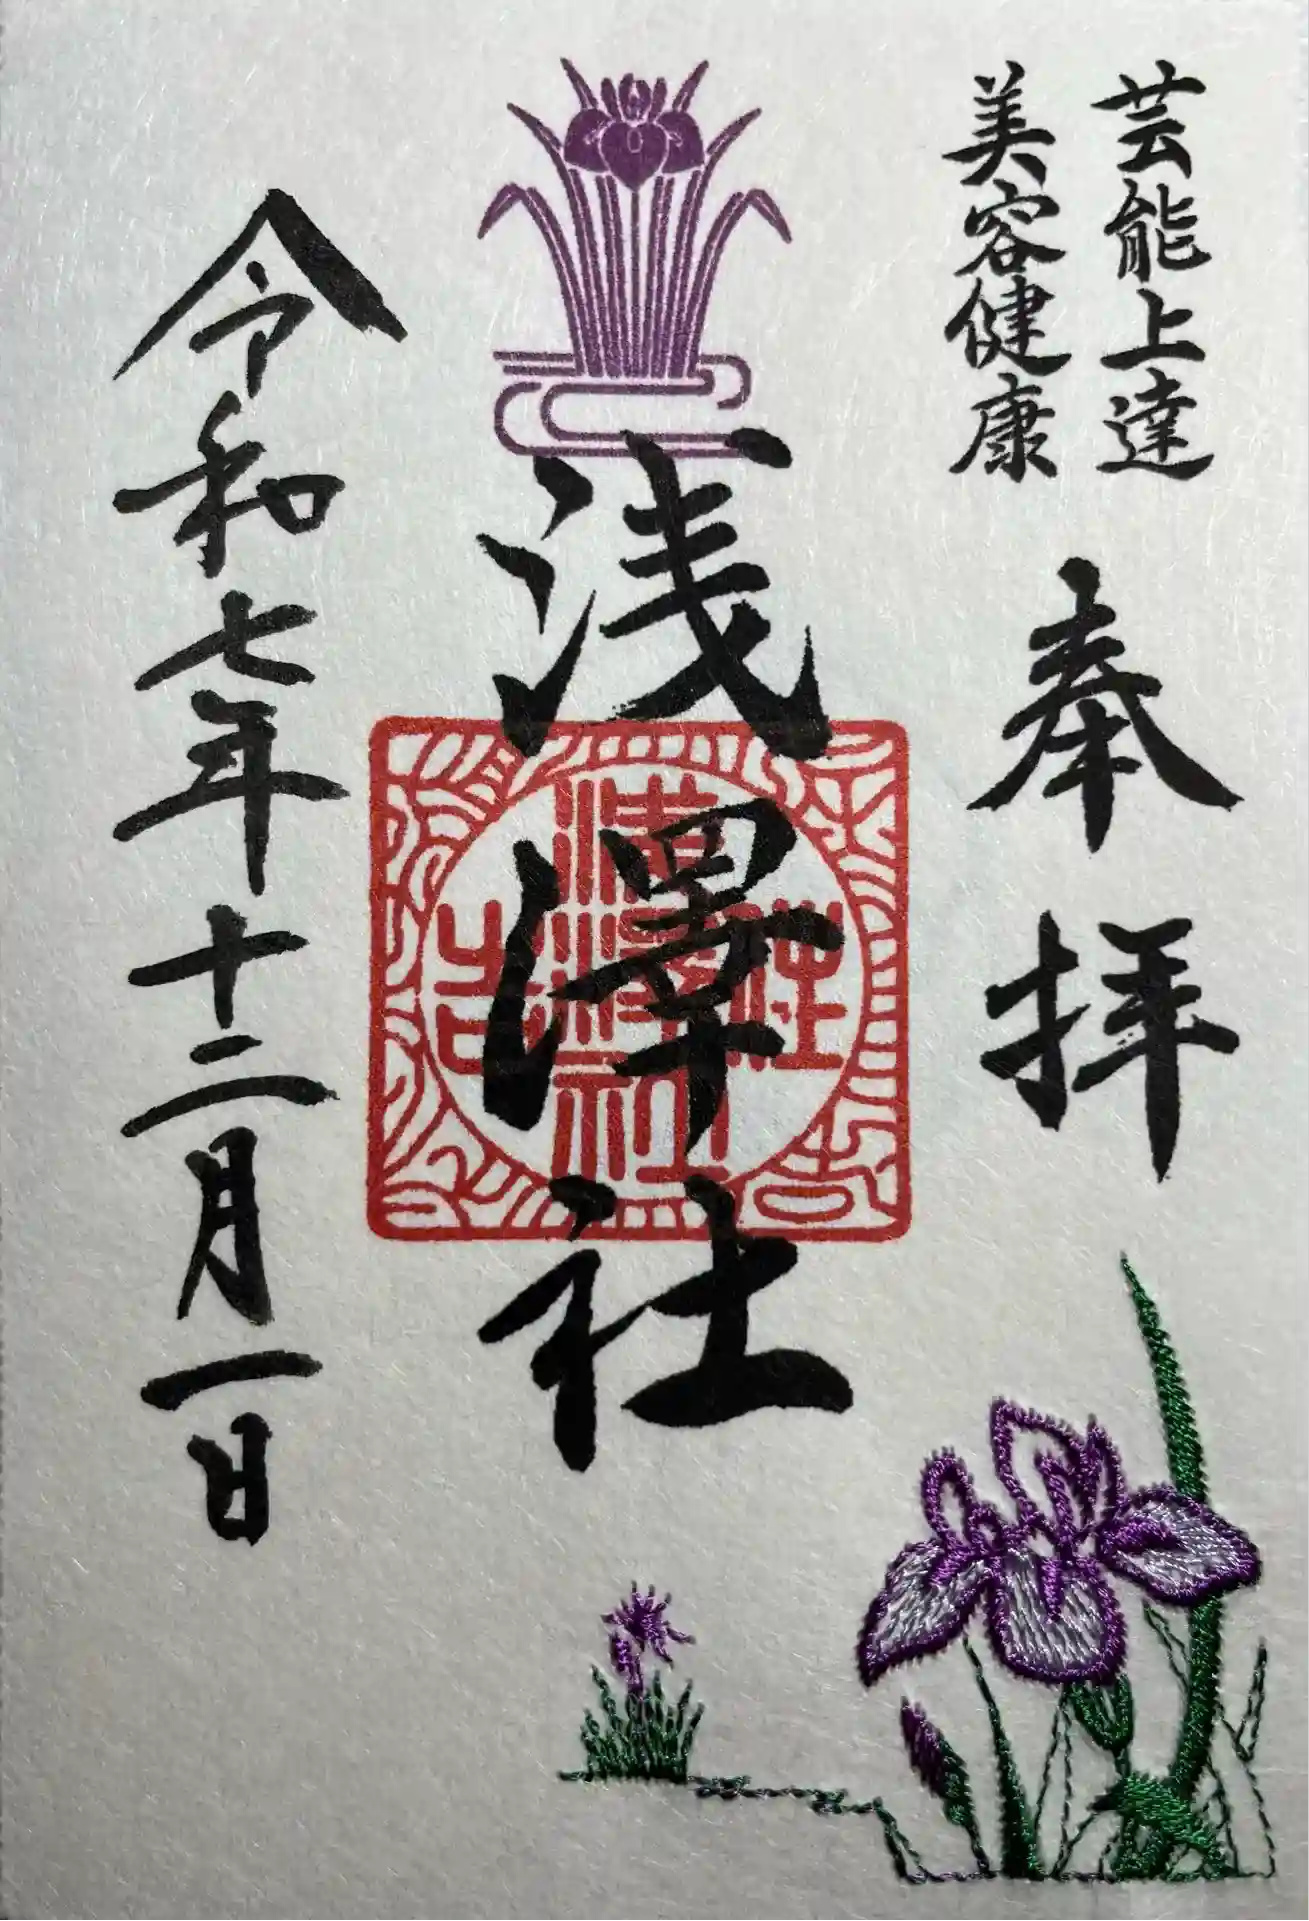 芸能上達
美容健康
奉拝
浅澤社
令和七年十二月一日